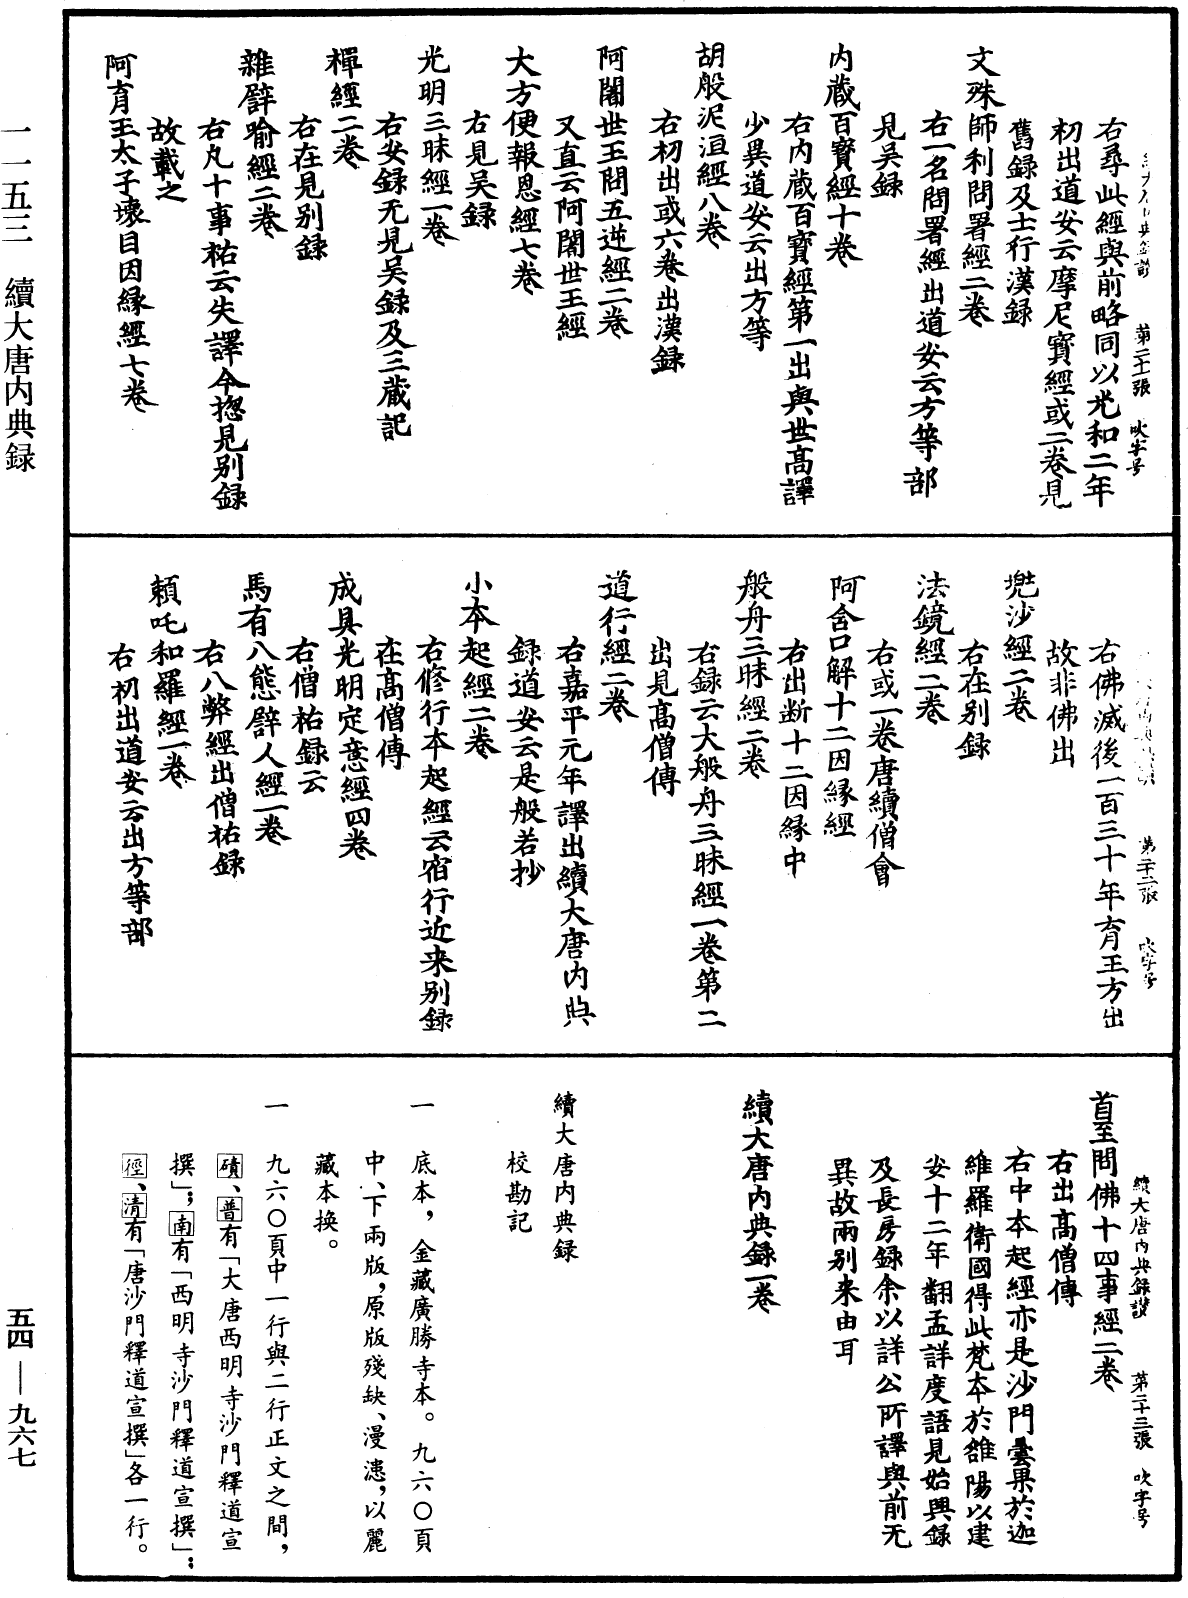 一一五三　續大唐内典録
第二十一張　吹字号
右尋此經與前略同以光和二年
初出道安云摩尼寳經或二卷見
舊録及士行漢録
文殊師利問署經二卷
右一名問署經出道安云方等部
見吴録
内蔵百寳經十卷
右内蔵百寳經第一出與世髙譯
少異道安云出方等
胡般泥洹經八卷
右初出或六卷出漢録
阿闍世王問五逆經二卷
又直云阿闍世王經
大方便報恩經七卷
右見吴録
光明三昧經一卷
右安録无見吴録及三蔵記
禪經二卷
右在見别録
雜譬喻經二卷
右凡十事祐云失譯今揔見别録
故載之
阿育王太子壊目因縁經七卷
第二十二張　吹字号
右佛滅後一百三十年育王方出
故非佛出
兠沙經二卷
右在别録
法鏡經二卷
右或一卷唐續僧會
阿含口解十二因縁經
右出断十二因縁中
般舟三昧經二卷
右録云大般舟三昧經一卷第二
出見高僧傳
道行經二卷
右嘉平元年譯出續大唐内典
録道安云是般若抄
小本起經二卷
右修行本起經云宿行近来别録
在高僧傳
成具光明定意經四卷
右僧祐録云
馬有八態譬人經一卷
右八弊經出僧祐録
頼吒和羅經一卷
右初出道安云出方等部
續大唐内典録讃　第二十三張　吹字号
首至問佛十四事經二卷
右出高僧傳
右中本起經亦是沙門曇果於迦
維羅衛國得此梵本於雒陽以建
安十二年翻孟詳度語見始興録
及長房録余以詳公所譯與前无
異故兩别来由耳
續大唐内典録一卷
續大唐内典録
校勘記
一　底本，金藏廣勝寺本。九六〇頁
中、下兩版，原版殘缺、漫漶，以麗
藏本换。
一　九六〇頁中一行與二行正文之間，
磧、普有「大唐西明寺沙門釋道宣
撰」；南有「西明寺沙門釋道宣撰」；
徑、清有「唐沙門釋道宣撰」各一行。
五四—九六七